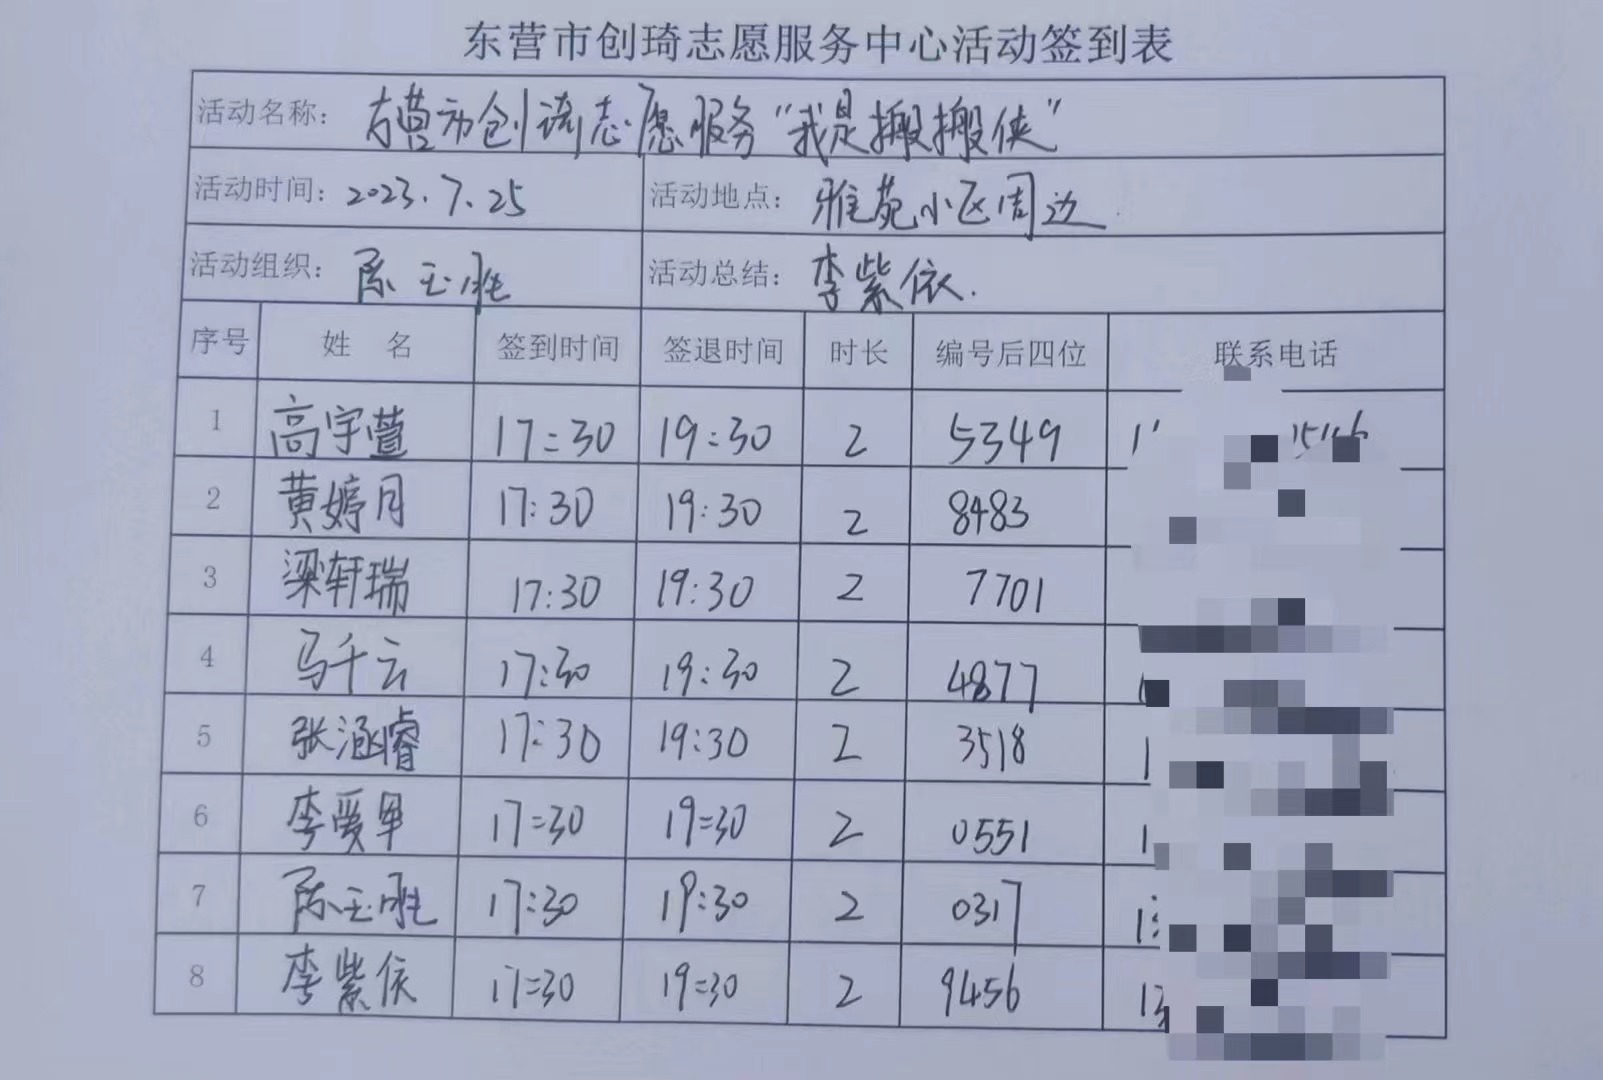 东营市创琦志愿服务中心活动签到表
活动名称： 东营市创琦志愿服务“我是搬搬侠”
活动时间： 2023.7.25 活动地点： 雅苑小区周边
活动组织： 陈玉胜 活动总结： 李紫依.
序号 姓 名 签到时间 签退时间 时长 编号后四位 联系电话
1 高宇萱 17:30 19:30 2 5349
2 黄婷月 17:30 19:30 2 8483
3 梁轩瑞 17:30 19:30 2 7701
4 马千云 17:30 19:30 2 4877
5 张涵睿 17:30 19:30 2 3518
6 李爱军 17:30 19:30 2 0551
7 陈玉胜 17:30 19:30 2 0317
8 李紫依 17:30 19:30 2 9456